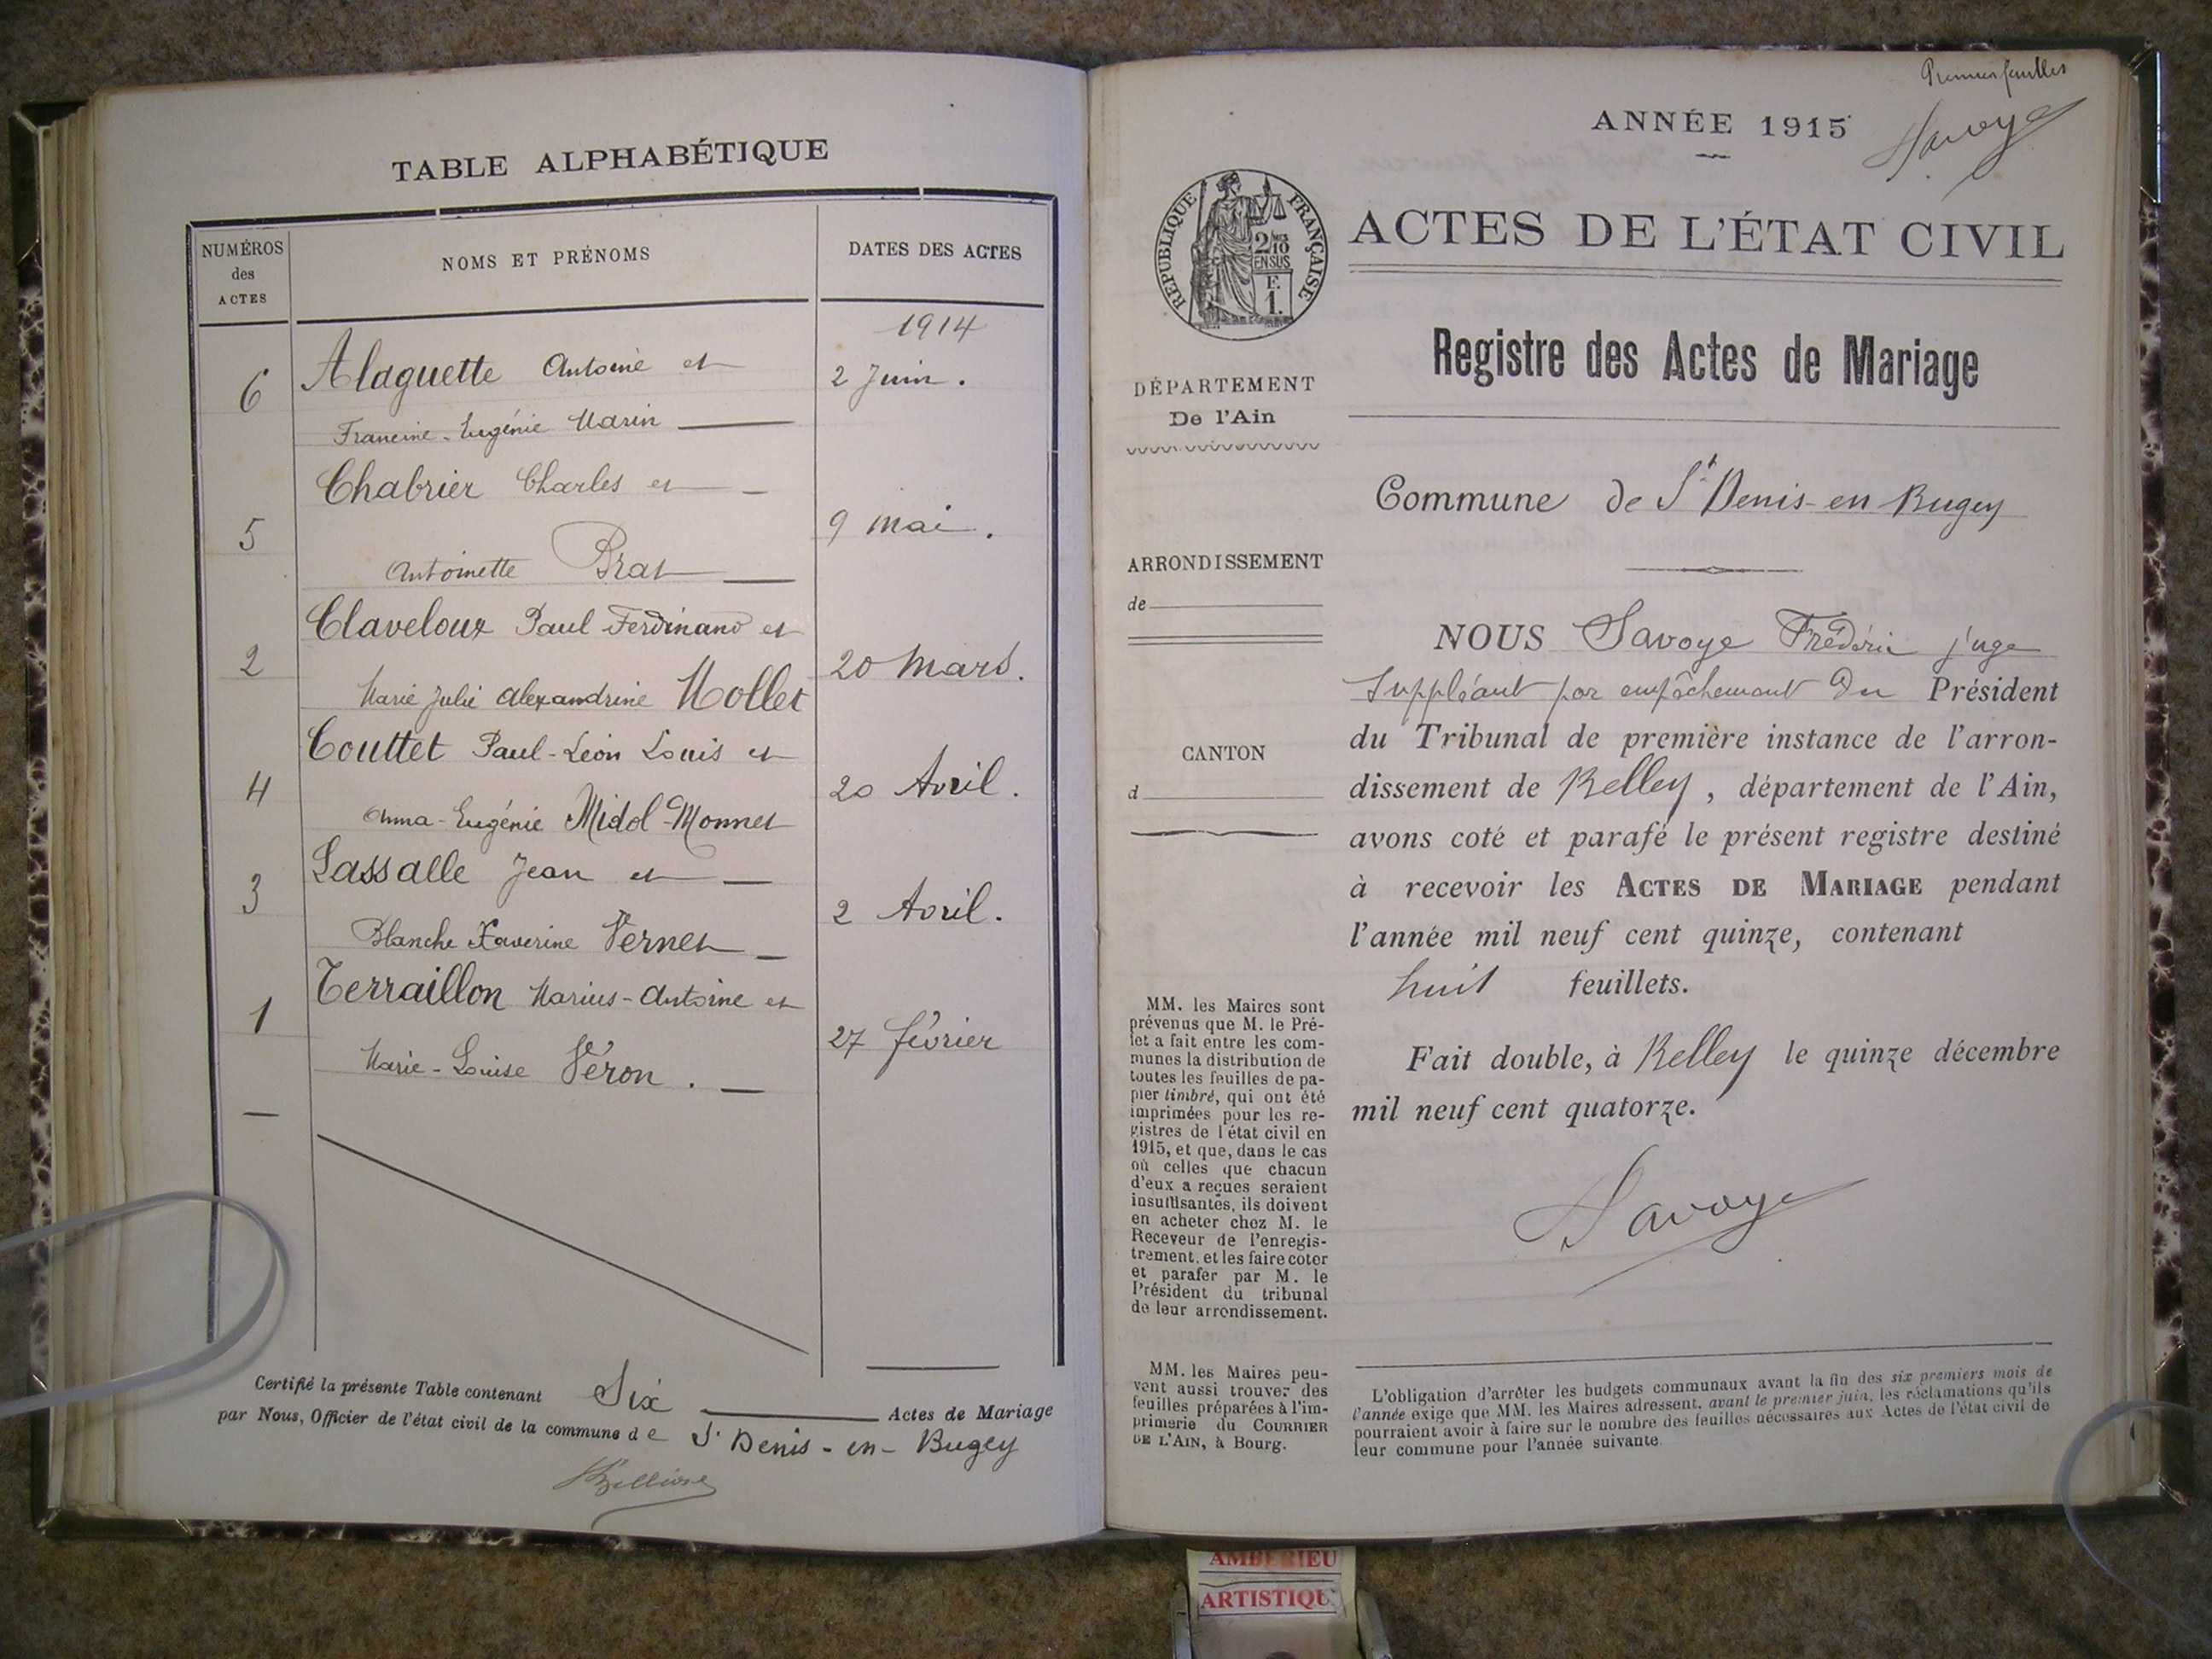 TABLE ALPHABÉTIQUE
NUMÉROS
des
ACTES
NOMS ET PRÉNOMS
DATES DES ACTES
1914
6
Alaguette Antoine et
2 Juin.
Francine-Eugénie Marin
Chabrier Charles et
5
9 mai.
Antoinette Prat
Claveloux Paul-Ferdinand et
2
20 Mars.
Marie Julie Alexandrine Mollet
Couttet Paul-Léon Louis et
4
20 Avril.
Anna-Eugénie Midol-Monnet
Lassalle Jean et
3
2 Avril.
Blanche Xaverine Vernet
Terraillon Marius-Antoine et
1
27 février
Marie-Louise Véron.
Certifié la présente Table contenant Six Actes de Mariage
par Nous, Officier de l'état civil de la commune de St Denis-en-Bugey
Premier feuillet
Savoye
ANNÉE 1915
RÉPUBLIQUE FRANÇAISE
2/10
EN SUS
F.
1.
ACTES DE L'ÉTAT CIVIL
Registre des Actes de Mariage
DÉPARTEMENT
De l'Ain
Commune de St Denis-en Bugey
ARRONDISSEMENT
de
CANTON
d
NOUS Savoye Frédéric juge
suppléant par empêchement du Président
du Tribunal de première instance de l'arron-
dissement de Belley, département de l'Ain,
avons coté et parafé le présent registre destiné
à recevoir les ACTES DE MARIAGE pendant
l'année mil neuf cent quinze, contenant
huit feuillets.
Fait double, à Belley le quinze décembre
mil neuf cent quatorze.
Savoye
MM. les Maires sont
prévenus que M. le Pré-
fet a fait entre les com-
munes la distribution de
toutes les feuilles de pa-
pier timbré, qui ont été
imprimées pour les re-
gistres de l'état civil en
1915, et que, dans le cas
où celles que chacun
d'eux a reçues seraient
insuffisantes, ils doivent
en acheter chez M. le
Receveur de l'enregis-
trement, et les faire coter
et parafer par M. le
Président du tribunal
de leur arrondissement.
MM. les Maires peu-
vent aussi trouver des
feuilles préparées à l'im-
primerie du COURRIER
DE L'AIN, à Bourg.
L'obligation d'arrêter les budgets communaux avant la fin des six premiers mois de
l'année exige que MM. les Maires adressent, avant le premier juin, les réclamations qu'ils
pourraient avoir à faire sur le nombre des feuilles nécessaires aux Actes de l'état civil de
leur commune pour l'année suivante.
AMBERIEU
ARTISTIQU